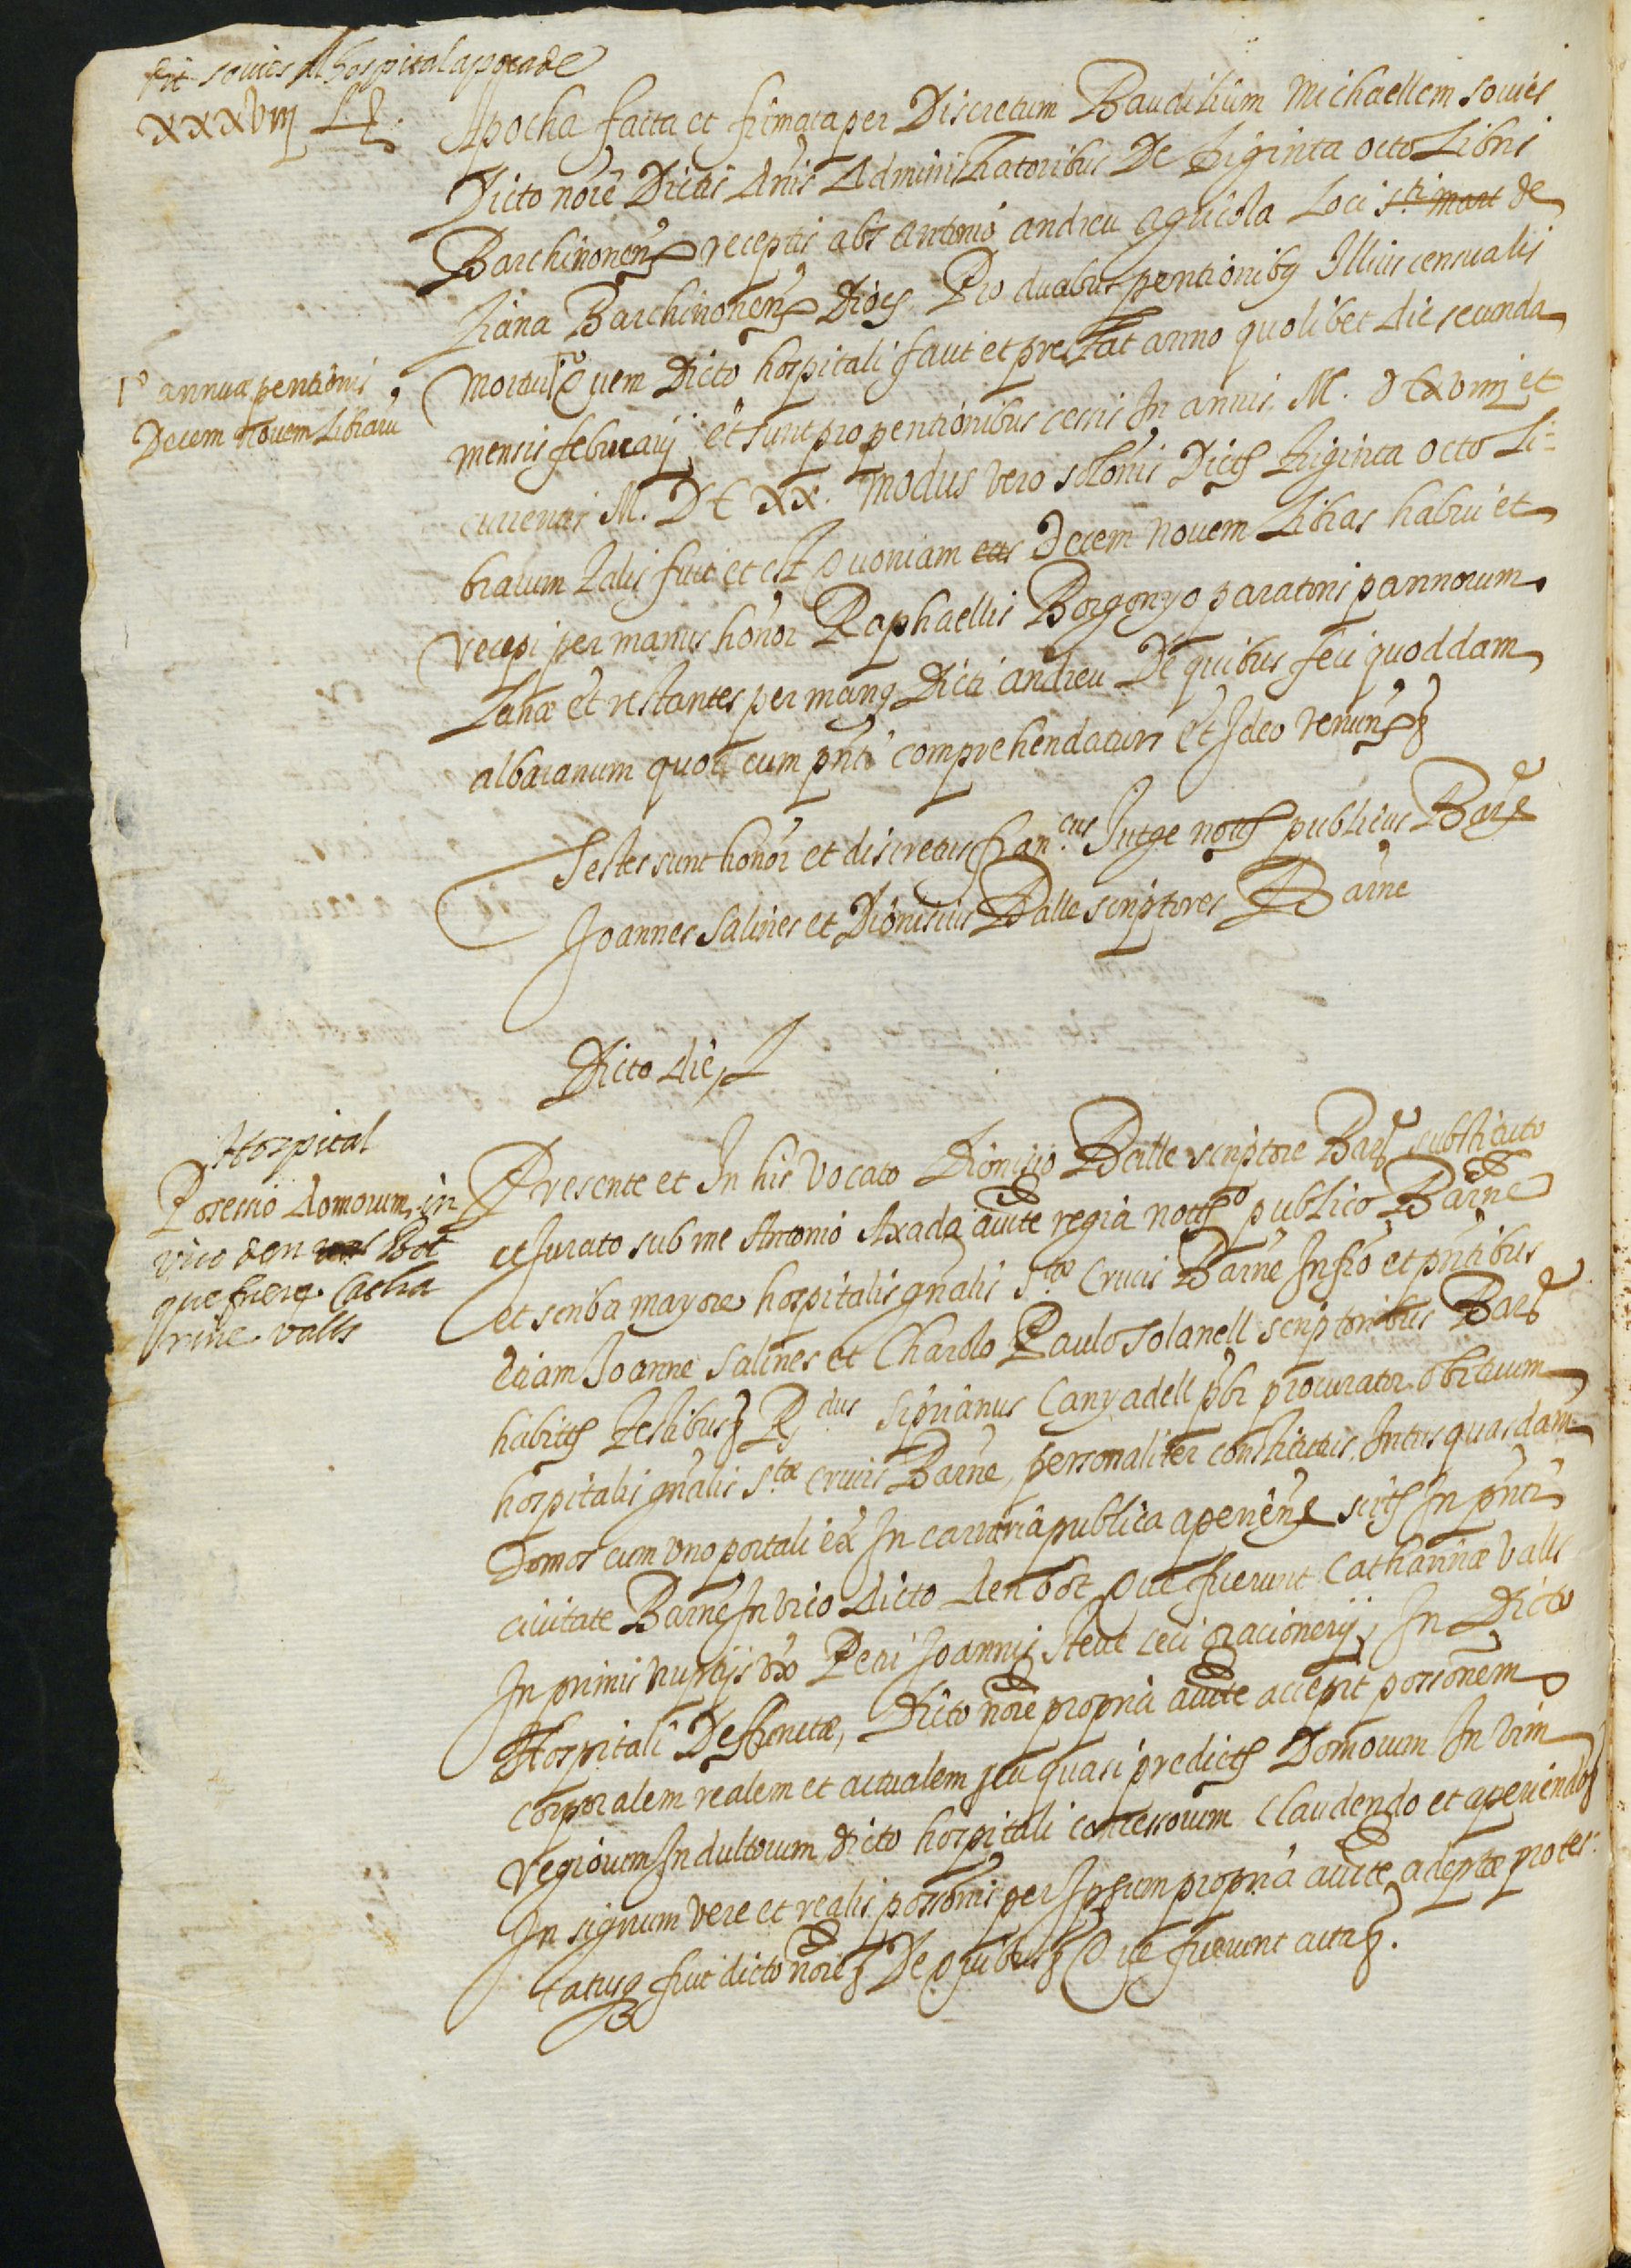 fit sovies al hospital apocade
xxxviij L L.
Apocha facta et firmata per Discretum Baudilium Michaellem sovies
Dicto noīe Dictis dnis Administratoribus De triginta octo Libris
Barchinonen receptis abs Antonio andreu agricola Loci S.ti Mart de
Tiana Barchinonen Dioc̄ Pro duabus pentionibq Illius censualis
mortui Quem Dicto hospitali facit et prestat anno quolibet die secunda
1º annuæ pentionis
Decem novem Librarū
mensis februarij et sunt pro pentionibus cessis In annis M. DCxviiij et
currentis M. DCxx. modus vero solonis Dictȩ triginta octo Li=
brarum talis fuit et est Quoniam eas Decem novem Libras habui et
recepi per manus honor Raphaellis Borgonyo paratoris pannorum
Lanæ et restantes per manq Dicti andreu De quibus feci quoddam
albaranum quod cum pn̄ti comprehendatur et Ideo renun
Testes sunt honor et discretus Fran.cus Jutge nots publicus Barc̄
Joannes Salines et Dionisius Balle scriptores Barne
Dicto die,
Hospital
Possessio domorum, in
vico den vas Bot
que fuerq. Catha
rine valls
Presente et In his vocato Dionisio Balle scriptore Barc̄ substituto
et Jurato sub me Antonio Axada aucte regia notº publico Barne
et scriba mayore hospitalis gnalis S.tæ Crucis Barne Infro et pn̄tibus
etiam Joanne Salines et Charolo Paulo Solanell scriptoribus Barc̄
habitȩ testibus R.dus Siprianus Canyadell pbr procurator obituum
hospitalis gnalis S.tæ crucis Barne, personaliter constitutus Intus quasdam
Domos cum vno portali ex In carraria publica aperien sitȩ In pn̄ti
civitate Barne In vico dicto den bot que fuerunt Catharinæ Valls
In primis nuptijs vxo Petri Joannis Steue ceci oracionerij, In Dicto
Hospitali Deffunctæ, Dicto noīe propria aucte accepit possonem
corporalem realem et actualem seu quasi predictȩ Domorum In vim
regiorum Indultorum dicto hospitali concessorum Claudendo et aperiendo
In signum vere et realis possonis per Ipsum propria aucte adeptæ protes
tatusq fuit dicto noīe De quibus Que fuerunt acta.